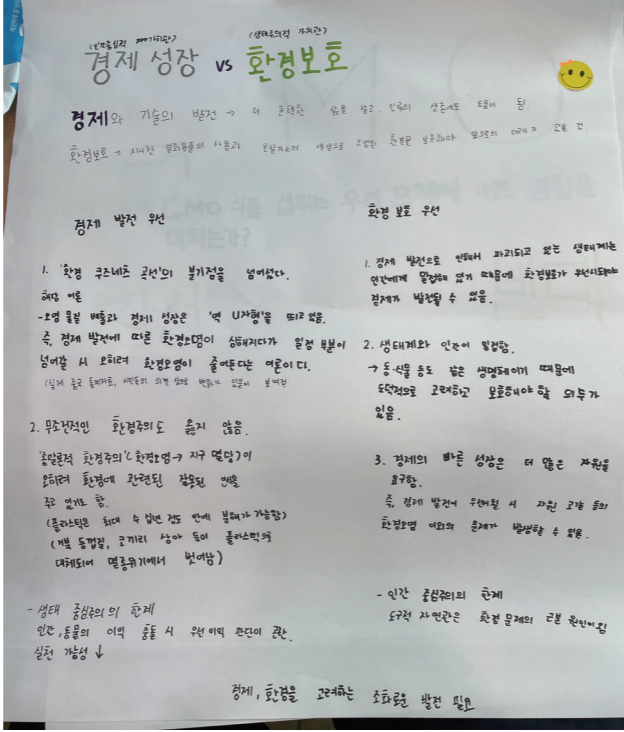 (인간중심적 가치관) (생태주의적 가치관)
경제 성장 vs 환경보호
경제와 기술의 발전 → 더 윤택한 삶을 살고, 인류의 생존에도 도움이 됨.
환경보호 → 지나친 일회용품의 사용과 온실가스의 발생으로 오염된 환경을 보호해야 앞으로의 미래가
경제 발전 우선
1. '환경 쿠즈네츠 곡선'의 분기점을 넘어섰다.
해당 이론
-오염 물질 배출과 경제 성장은 '역 U자형'을 띄고 있음.
즉, 경제 발전에 따른 환경오염이 심해지다가 일정 부분이
넘어갈 시 오히려 환경오염이 줄어든다는 이론이다.
(실제 중국 시민들의 의견 있음이 보여짐
2. 무조건적인 환경주의도 옳지 않음.
'종말론적 환경주의'(환경오염→지구 멸망)이
오히려 환경에 관련된 잘못된 면을
주고 있기도 함.
(플라스틱은 최대 수 십년 정도 안에 분해가 가능함)
(거북 등껍질, 코끼리 상아 등이 플라스틱으로
대체되어 멸종위기에서 벗어남)
- 생태 중심주의의 한계
인간, 동물의 이익 충돌 시 우선 이익 판단이 곤란.
실천 가능성 ↓
환경 보호 우선
1. 경제 발전으로 인해서 파괴되고 있는 생태계는
인간에게 밀접해 있기 때문에 환경보호가 우선시되어야
경제가 발전될 수 있음.
2. 생태계와 인간이 밀접함.
→ 동·식물 등도 같은 생명체이기 때문에
도덕적으로 고려하고 보호해야 할 의무가
있음.
3. 경제의 빠른 성장은 더 많은 자원을
요구함.
즉, 경제 발전이 우선이 될 시 자원 고갈 등의
환경오염 이외의 문제가 발생할 수 있음.
- 인간 중심주의의 한계
도구적 자연관은 환경 문제의 근본 원인이 됨
경제, 환경을 고려하는 조화로운 발전 필요